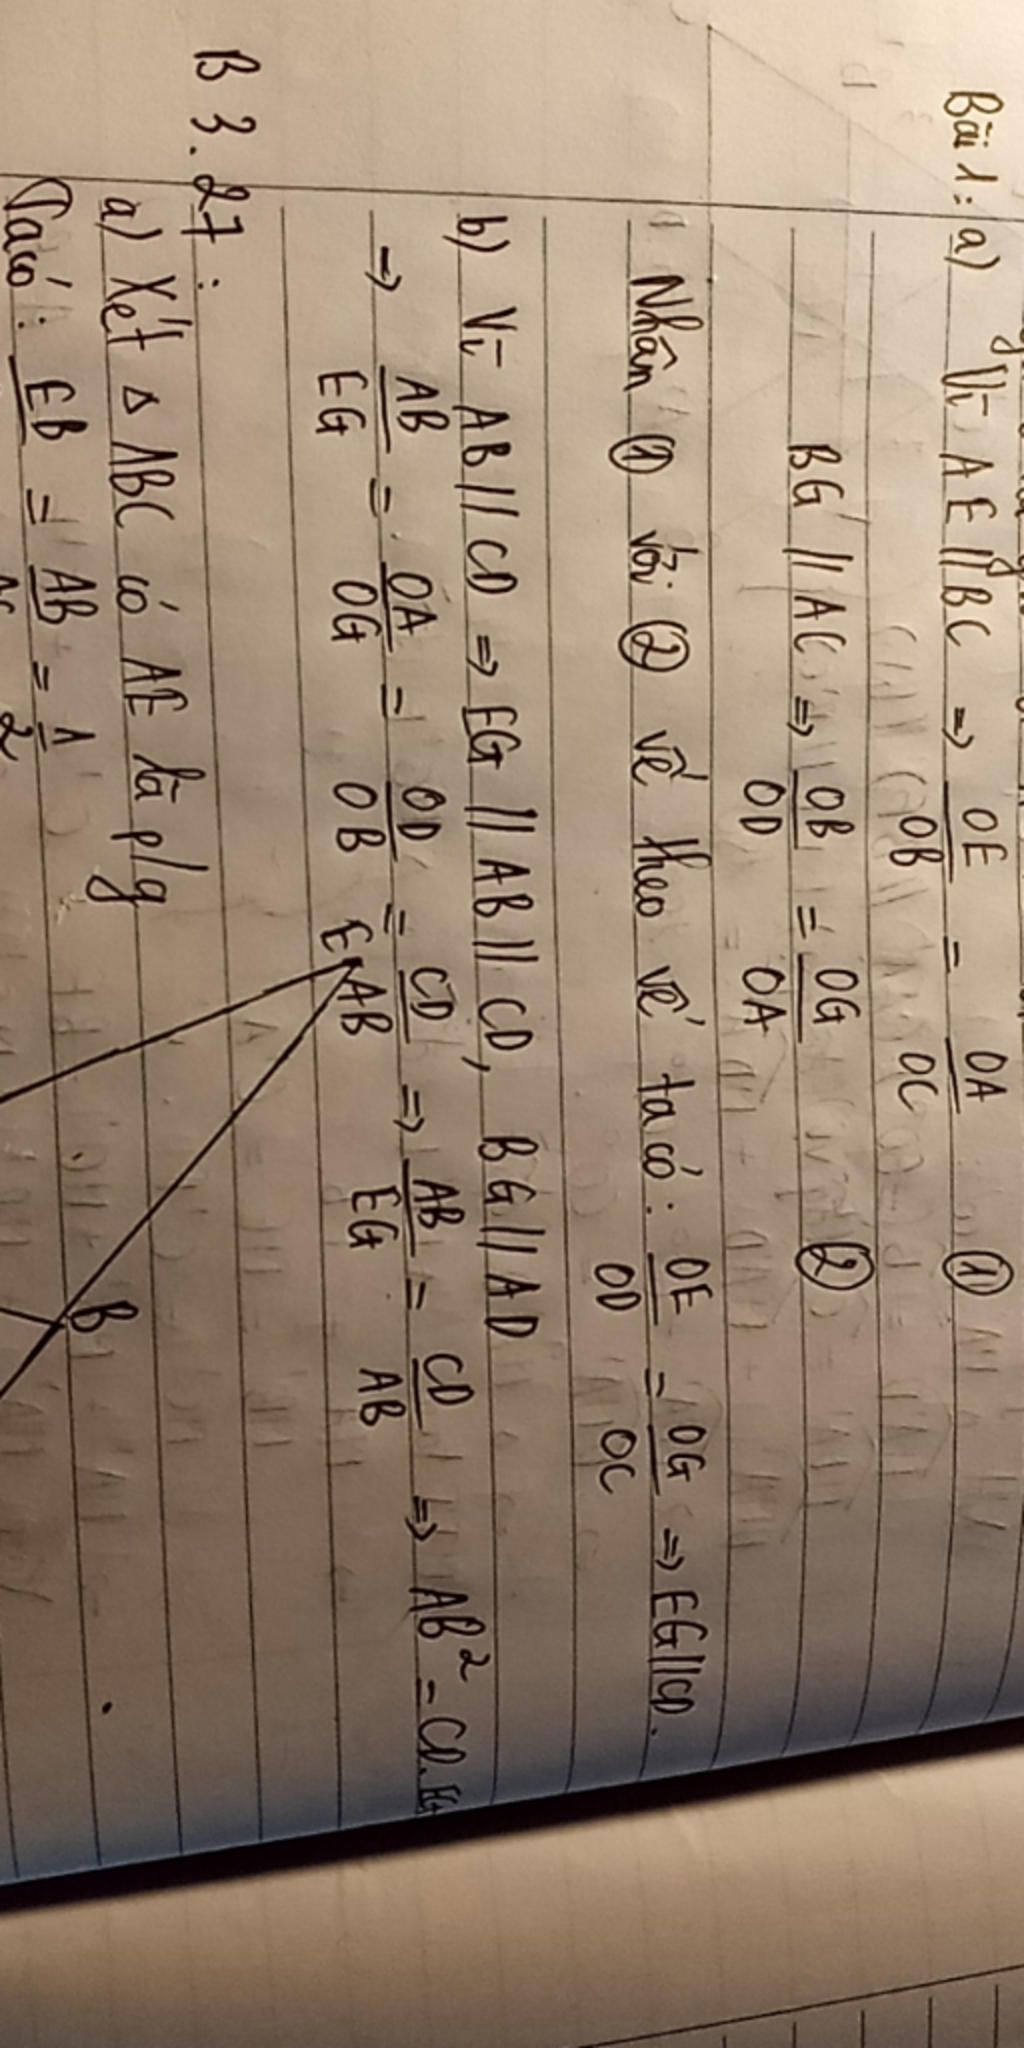 Bài 1: a) Vì AE // BC => OE/OB = OA/OC ①
BG // AC => OB/OD = OG/OA ②
Nhân ① với ② vế theo vế ta có: OE/OD = OG/OC => EG//CD.
b) Vì AB // CD => EG // AB // CD, BG // AD
=> AB/EG = OA/OG = OD/OB = CD/AB => AB/EG = CD/AB => AB² = CD.EG
B 3.27:
a) Xét Δ ABC có AE là p/g
Ta có: EB = AB = 1
2
E
B